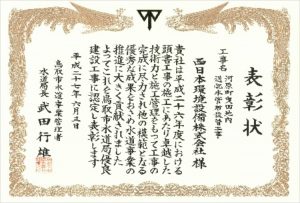 表彰状
工事名 河原町曳田地内
送配水管布設替工事
西日本環境設備株式会社 様
貴社は平成二十六年度における
頭書工事の施工にあたり卓越した
技術力と施工管理をもって工事の
完成に尽力され他の模範となる
優秀な成果をおさめ水道事業の
推進に大きく貢献されました
よってこれを鳥取市水道局優良
建設工事に認定し表彰します
平成二十七年六月三日
鳥取市水道事業管理者
水道局長 武田行雄